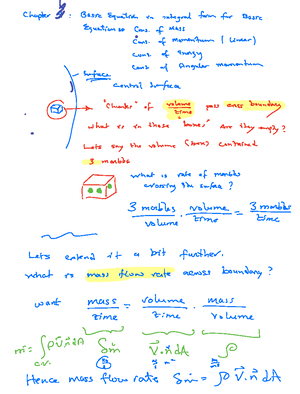 Chapter : Basic Equations in integral form for Basic
Equations: Cons. of Mass
Cons. of Momentum (Linear)
Cons. of Energy
Cons. of Angular Momentum
Surface
Control Surface
"Chunks" of volume/time pass across boundary
What is in these boxes? Are they empty?
Lets say the volume (box) contained
3 marbles
What is rate of marbles
crossing the surface?
3 marbles/volume · volume/time = 3 marbles/time
Lets extend it a bit further.
What is mass flow rate across boundary?
Want mass/time = volume/time · mass/volume
ṁ = ∫ρV̄·n̄dA δṁ V̄·n̄dA ρ
C.V.
Hence mass flow rate δṁ = ∫ρ V̄·n̄ dA